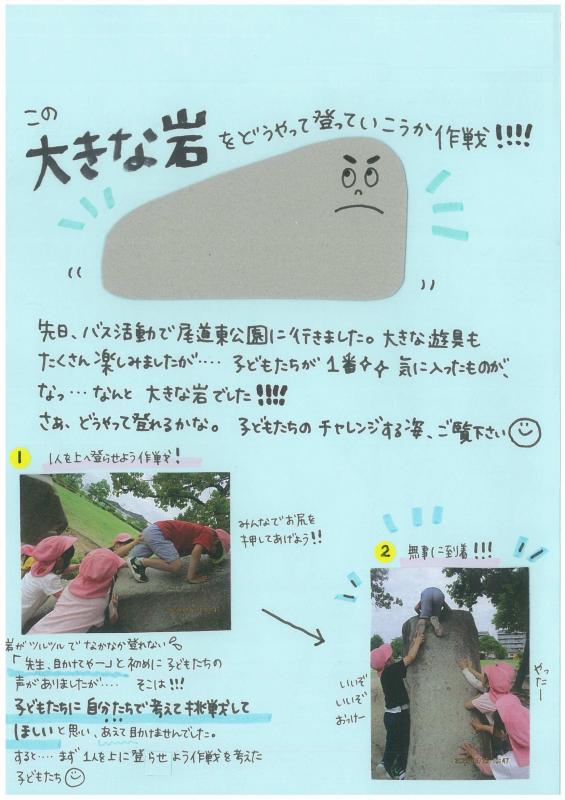 この
大きな岩をどうやって登っていこうか作戦!!!!
先日、バス活動で尾道東公園に行きました。大きな遊具も
たくさん楽しみましたが‥‥ 子どもたちが1番✧✧気に入ったものが、
なっ‥‥なんと 大きな岩でした!!!!
さあ、どうやって登れるかな。 子どもたちのチャレンジする姿、ご覧下さい
1 1人を上へ登らせよう作戦!
みんなでお尻を
押してあげよう!!
岩がツルツルでなかなか登れない
「先生、助けてやー」と初めに子どもたちの
声がありましたが‥‥ そこは!!!
子どもたちに自分たちで考えて挑戦して
ほしいと思い、あえて助けませんでした。
すると‥‥まず1人を上に登らせよう作戦を考えた
子どもたち
2 無事に到着!!!
いいぞ
いいぞ
おっけー
やったー